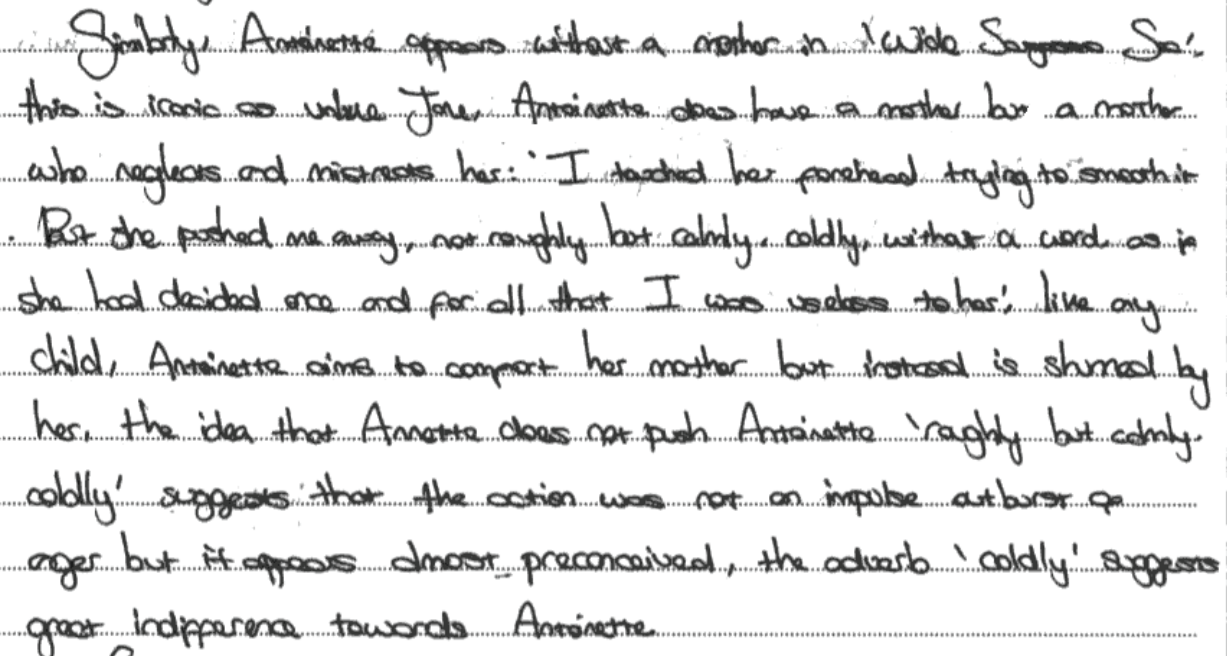 Similarly, Antoinette appears without a mother in 'Wide Sargasso Sea'.
this is iconic as unlike Jane, Antoinette does have a mother but a mother
who neglects and mistreats her: 'I touched her forehead trying to smooth it
. But she pushed me away, not roughly but calmly, coldly, without a word, as if
she had decided once and for all that I was useless to her', like any
child, Antoinette aims to comfort her mother but instead is shunned by
her. the idea that Annette does not push Antoinette 'roughly but calmly.
coldly' suggests that the action was not an impulse outburst of
anger but it appears almost preconceived, the adverb 'coldly' suggests
great indifference towards Antoinette